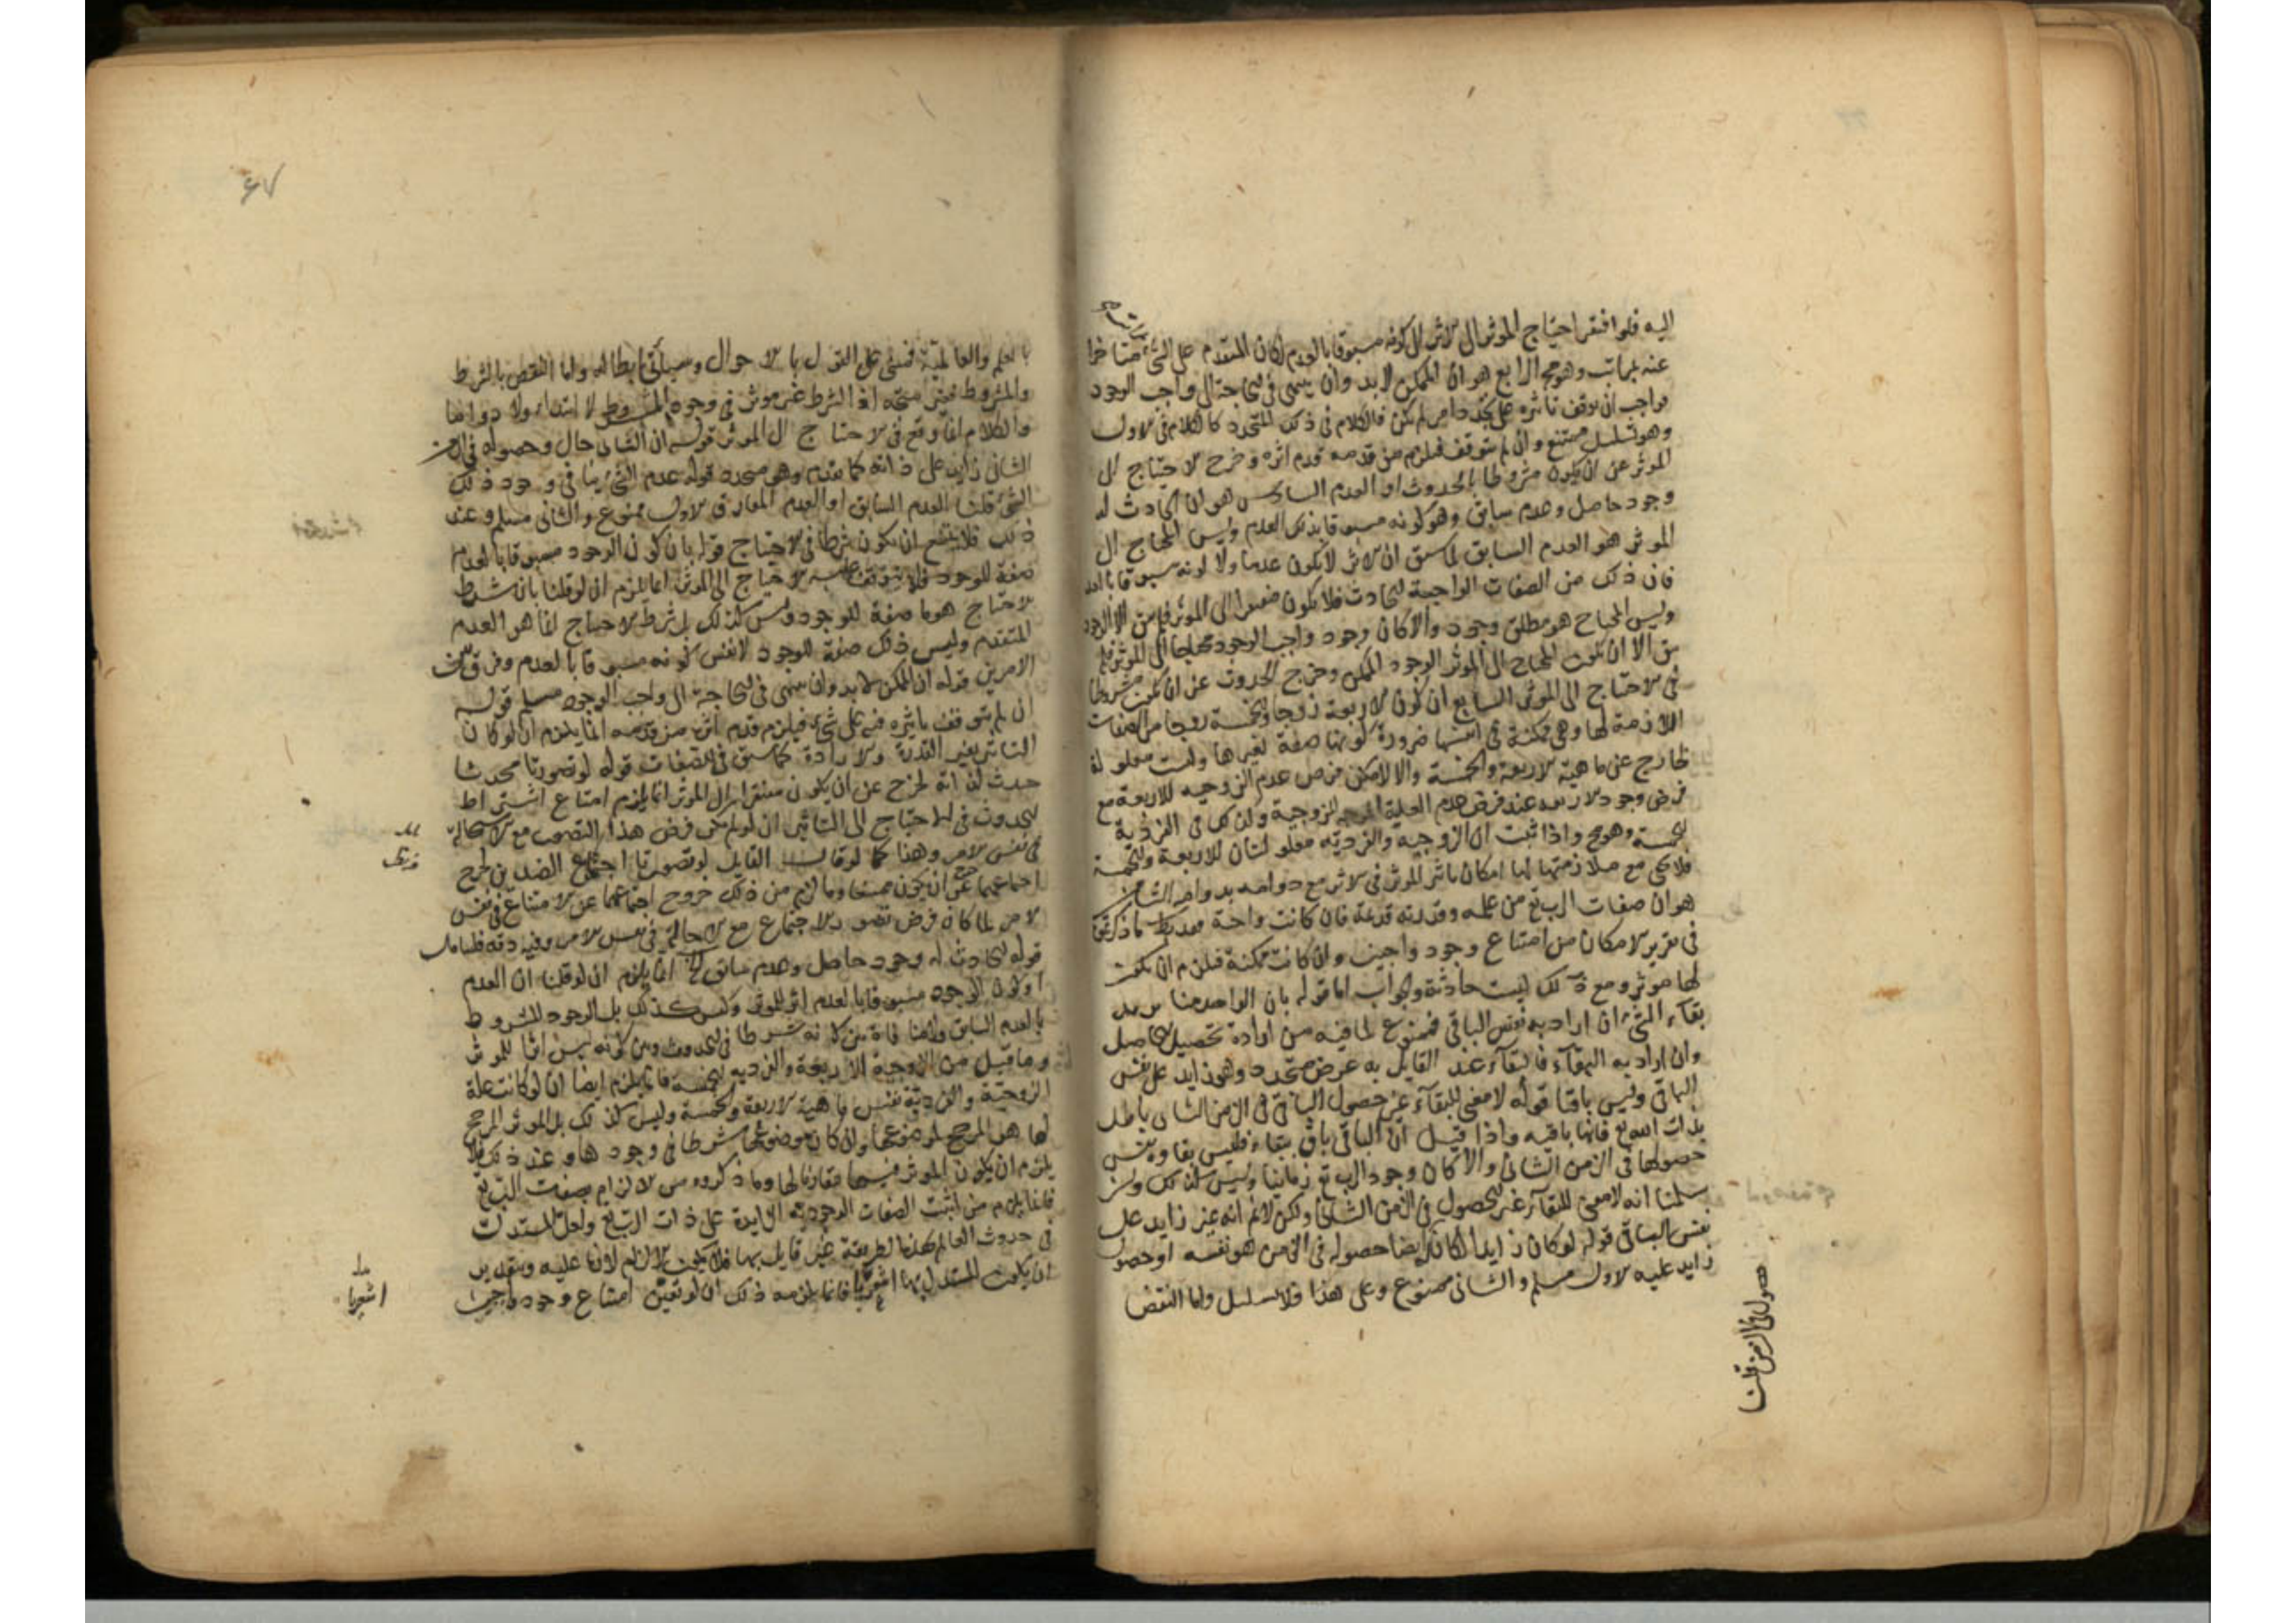 اليه فلو افتقر احتياج الموثر الى الاثر الى كونه مسبوقا بالعدم لكان المتقدم على الشي متاخرا
عنه بمراتب وهو مح الرابع هو ان الممكن لا بد وان ينتهى فى الحاجة الى واجب الوجود
فواجب ان توقف تاثيره على تجدد امر لم يكن فالكلام فى ذلك المتجدد كالكلام فى الاول
وهو تسلسل ممتنع وان لم يتوقف فيلزم من قدمه قدم اثره وخرج الاحتياج الى
الموثر عن ان يكون مشروطا بالحدوث او العدم السابق هو ان الحادث له
وجود حاصل وعدم سابق وهو كونه مسبوقا بذلك العدم وليس المحتاج الى
الموثر هو العدم السابق لما سبق ان الاثر لا يكون عدما ولا كونه مسبوقا بالعدم
فان ذلك من الصفات الواجبة للحادث فلا يكون مفتقرا الى الموثر فلم يبق الا الوجود
وليس المحتاج هو مطلق وجود والا كان وجود واجب الوجود محتاجا الى الموثر فلم
يبق الا ان يكون المحتاج الى الموثر الوجود الممكن وخرج الحدوث عن ان يكون مشروطا
فى الاحتياج الى الموثر السابع ان كون الاربعة زوجا والخمسة فردا من الصفات
اللازمة لها وهى ممكنة فى انفسها ضرورة كونها صفة لغيرها وليست معلولة
لخارج عن ماهية الاربعة والخمسة والا لامكن فرض عدم الزوجية للاربعة مع
فرض وجود الاربعة عند فرض عدم العلة الموجبة للزوجية وكذلك فى الفردية
للخمسة وهو مح واذا ثبت ان الزوجية والفردية معلولتان للاربعة والخمسة
فلا يخفى مع ملازمتها لها امكان تاثير الموثر فى الاثر مع دوامه بدوامه الثامن
هو ان صفات الرب تع من علمه وقدرته قديمة فان كانت واجبة فهو باطل لما ذكرتموه
فى تقرير الامكان من امتناع وجود واجبين وان كانت ممكنة فيلزم ان يكون
لها موثر ومع ذلك ليست حادثة والجواب اما قوله بان الواحد منا يريد
بقاء الشئ ان اراد به نفس الباقى فممنوع لما فيه من ارادة تحصيل الحاصل
وان اراد به البقاء فالبقاء عند القايل به عرض متجدد وهو زايد على نفس
الباقى وليس باقيا قوله لا معنى للبقاء غير حصول الباقى فى الزمن الثانى باطل
بذات الله تع فانها باقيه واذا قيل ان الباقى باق ببقاء فليس بقاوه نفس
حصولها فى الزمن الثانى والا كان وجود الرب تع زمانيا وليس كذلك ولئن
سلمنا انه لا معنى للبقاء غير الحصول فى الزمن الثانى ولكن لا نم انه غير زايد على
نفس الباقى قوله لو كان زايدا لكان ايضا حصوله فى الزمن هو نفسه او حصول
زايد عليه الاول مسلم والثانى ممنوع وعلى هذا فلا تسلسل واما النقض
حصوله فى الزمن قلنا
٤٧
بالعلم والعالمية فمبنى على القول بالاحوال وسياتى ابطاله واما النقض بالشرط
والمشروط فغير متجه اذ الشرط غير موثر فى وجود المشروط لا ابتداء ولا دواما
والكلام انما وقع فى الاحتياج الى الموثر قوله ان الثانى حال وحصوله فى الزمن
الثانى زايد على ذاته كما تقدم وهو متجدد قوله عدم الشئ ينافى وجود ذلك
الشئ قلنا العدم السابق او العدم المقارن الاول ممنوع والثانى مسلم وعند
ذلك فلا يمتنع ان يكون شرطا فى الاحتياج قوله بان كون الوجود مسبوقا بالعدم
صفة للوجود فلا يتوقف عليه الاحتياج الى الموثر انما يلزم ان لو قلنا بان شرط
الاحتياج هو ما صفة للوجود وليس كذلك بل شرط الاحتياج انما هو العدم
المتقدم وليس ذلك صفة للوجود لا نفس كونه مسبوقا بالعدم وفرق بين
الامرين قوله ان الممكن لا بد وان ينتهى فى الحاجة الى واجب الوجود مسلم قوله
ان لم يتوقف تاثيره فيه على شئ فيلزم قدم اثره من قدمه انما يلزم ان لو كان
التاثير بغير القدرة والارادة كما سبق فى الصفات قوله لو تصورنا محدثا
حدث لذاته لخرج عن ان يكون مفتقرا الى الموثر انما يلزم امتناع اشتراط
الحدوث فى الاحتياج الى التاثير ان لو لم يكن فرض هذا التصور مع الاستحالة
فى نفس الامر وهذا كما لو قال القايل لو تصورنا اجتماع الضدين لخرج
اجتماعهما عن ان يكون ممتنعا وما لزم من ذلك خروج اجتماعهما عن الامتناع فى نفس
الامر لما كان فرض تصور الاجتماع مع الاحالة فى نفس الامر وفيه دقه فليتامل
قوله الحادث له وجود حاصل وعدم سابق انما يلزم ان لو قلنا ان العدم
او كون الوجود مسبوقا بالعدم اثر للموثر وليس كذلك بل الوجود المشروط
بالعدم السابق ولا منافاة بين كونه شرطا فى الحدوث وبين كونه ليس اثرا للموثر
وما قيل من الزوجية للاربعة والفردية للخمسة فانما يلزم ايضا ان لو كانت علة
الزوجية والفردية نفس ماهية الاربعة والخمسة وليس كذلك بل الموثر المرجح
لها هو المرجح لموضوعها وان كان موضوعها شرطا فى وجودها وعند ذلك فلا
يلزم ان يكون الموثر فيها مقارنا لها وما ذكروه من الالزام بصفات الرب تع
فانما يلزم من اثبت الصفات الوجودية الزايدة على ذات الرب تع ولعل المستدل
فى حدوث العالم بهذه الطريقة غير قايل بها فلا يكون الالزام لازما عليه وبتقدير
ان يكون المستدل بها اشعريا فانما يلزمه ذلك ان لو تعين امتناع وجود واجبين
اشعريا